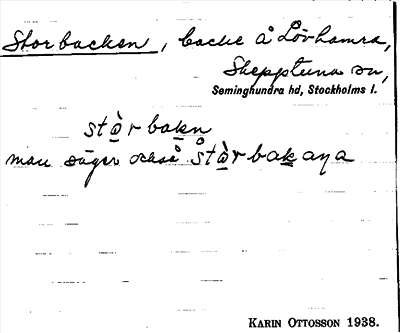 Storbacken, backe å Lövhamra,
Skepptuna sn,
Seminghundra hd, Stockholms l.
stòrbakn
man säger också stòrbakaṇa
KARIN OTTOSSON 1938.